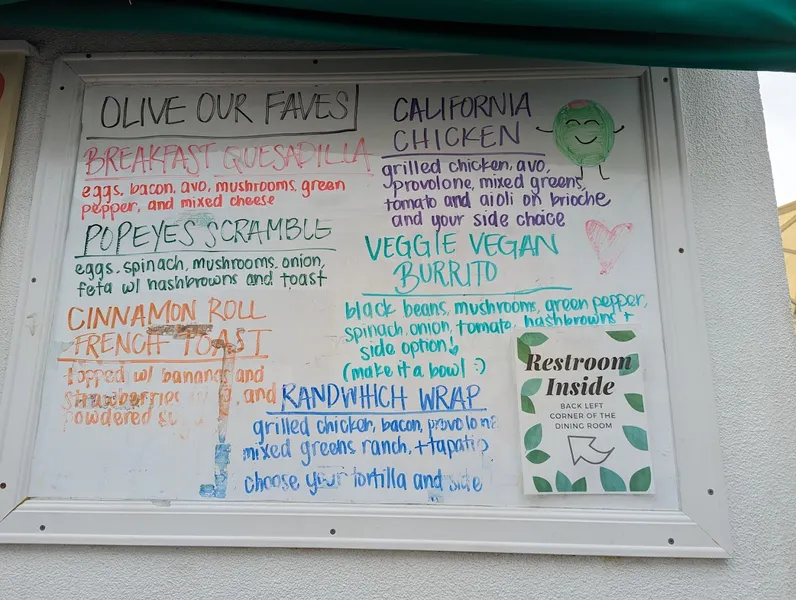 OLIVE OUR FAVES
BREAKFAST QUESADILLA
eggs, bacon, avo, mushrooms, green
pepper, and mixed cheese
POPEYES SCRAMBLE
eggs, spinach, mushrooms, onion,
feta w/ hashbrowns and toast
CINNAMON ROLL
FRENCH TOAST
topped w/ bananas and
and
powdered
CALIFORNIA
CHICKEN
grilled chicken, avo,
provolone, mixed greens,
tomato and aioli on brioche
and your side choice
VEGGIE VEGAN
BURRITO
black beans, mushrooms, green pepper,
spinach, onion, tomato, hashbrowns +
side option!
(make it a bowl :)
RANDWHICH WRAP
grilled chicken, bacon, provolone
mixed greens, ranch, + tapatio
choose your tortilla and side
Restroom
Inside
BACK LEFT
CORNER OF THE
DINING ROOM